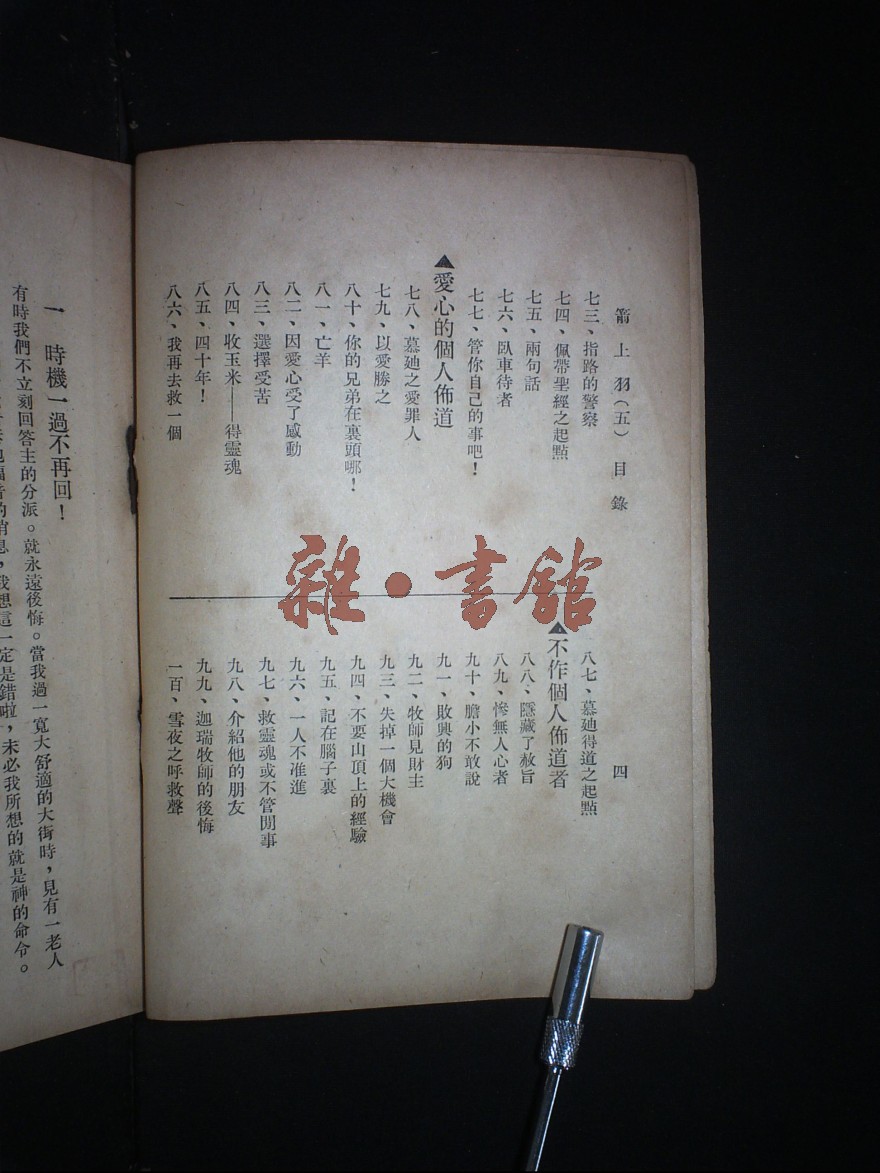 箭上羽（五）　目錄　四
七三、指路的警察
七四、佩帶聖經之起點
七五、兩句話
七六、臥車待者
七七、管你自己的事吧！
▲愛心的個人佈道
七八、慕廸之愛罪人
七九、以愛勝之
八十、你的兄弟在裏頭哪！
八一、亡羊
八二、因愛心受了感動
八三、選擇受苦
八四、收玉米——得靈魂
八五、四十年！
八六、我再去救一個
八七、慕廸得道之起點
▲不作個人佈道者
八八、隱藏了赦旨
八九、慘無人心者
九十、膽小不敢說
九一、敗興的狗
九二、牧師見財主
九三、失掉一個大機會
九四、不要山頂上的經驗
九五、記在腦子裏
九六、一人不准進
九七、救靈魂或不管閒事
九八、介紹他的朋友
九九、迦瑞牧師的後悔
一百、雪夜之呼救聲
雜•書館
一　時機一過不再回！
有時我們不立刻回答主的分派。就永遠後悔。當我過一寬大舒適的大街時，見有一老人
福音的消息，我想這一定是錯啦，未必我所想的就是神的命令。